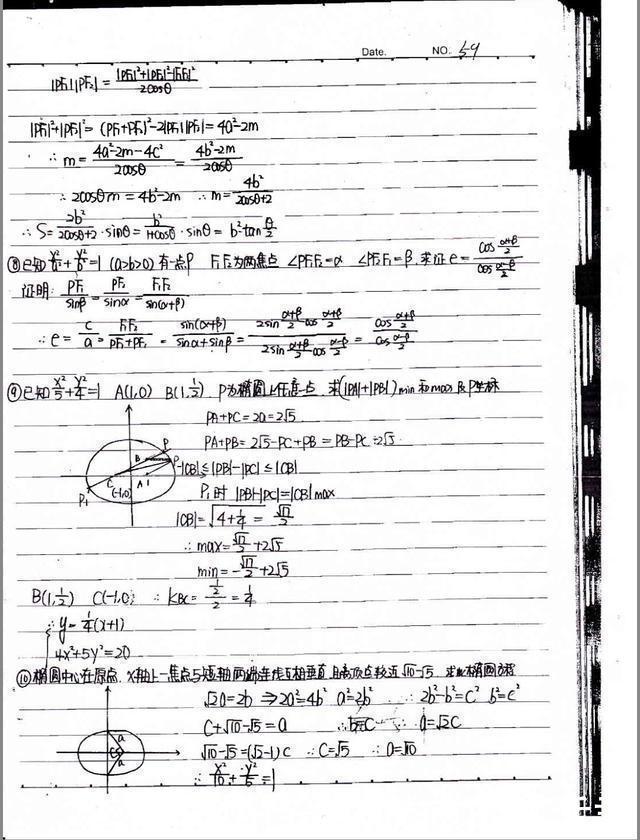 Date. NO. 59
|PF₁||PF₂| = (|PF₁|²+|PF₂|²-|F₁F₂|²)/(2cosθ)
|PF₁|²+|PF₂|² = (PF₁+PF₂)²-2|PF₁||PF₂| = 4a²-2m
∴ m = (4a²-2m-4c²)/(2cosθ) = (4b²-2m)/(2cosθ)
∴ 2cosθm = 4b²-2m ∴ m = 4b²/(2cosθ+2)
∴ S = 2b²/(2cosθ+2) · sinθ = b²/(1+cosθ) · sinθ = b²tan θ/2
⑧已知 x²/a²+y²/b²=1 (a>b>0) 有一点P F₁F₂为两焦点 ∠PF₁F₂=α ∠PF₂F₁=β, 求证 e = cos((α+β)/2)/cos((α-β)/2)
证明: PF₁/sinβ = PF₂/sinα = F₁F₂/sin(α+β)
∴ e = c/a = F₁F₂/(PF₂+PF₁) = sin(α+β)/(sinα+sinβ) = (2sin((α+β)/2)cos((α+β)/2))/(2sin((α+β)/2)cos((α-β)/2)) = cos((α+β)/2)/cos((α-β)/2)
⑨已知 x²/5+y²/4=1 A(1,0) B(1,½) P为椭圆上任意一点 求(|PA|+|PB|)min和max及P坐标
PA+PC=2a=2√5
PA+PB=2√5-PC+PB = PB-PC+2√5
P
B
P
C
A 1
(-1,0)
P₁
-|CB|≤|PB|-|PC|≤|CB|
P₁时 |PB|-|PC|=|CB|max
|CB|=√(4+¼) = √17/2
∴ max=√17/2+2√5
min=-√17/2+2√5
B(1,½) C(-1,0) ∴ K_BC = ½/2 = ¼
y=¼(x+1)
4x²+5y²=20
⑩椭圆中心在原点, x轴上一焦点与短轴两端连线互相垂直, 且与顶点较近√10-√5, 求椭圆方程
√2a=2b ⇒2a²=4b² a²=2b² ∴ 2b²-b²=c² b²=c²
C+√10-√5=a ∴b=C ∴ a=√2C
a
C
a
√10-√5=(√2-1)c ∴ C=√5 ∴ a=√10
∴ x²/10+y²/5=1